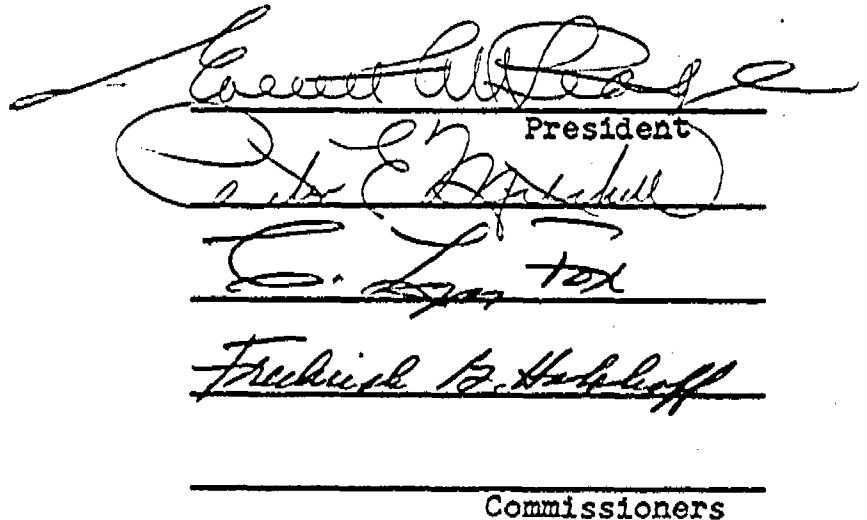 Everett C. McKeage
President
Peter E. Mitchell
C. Lyn Fox
Frederick B. Holoboff
Commissioners